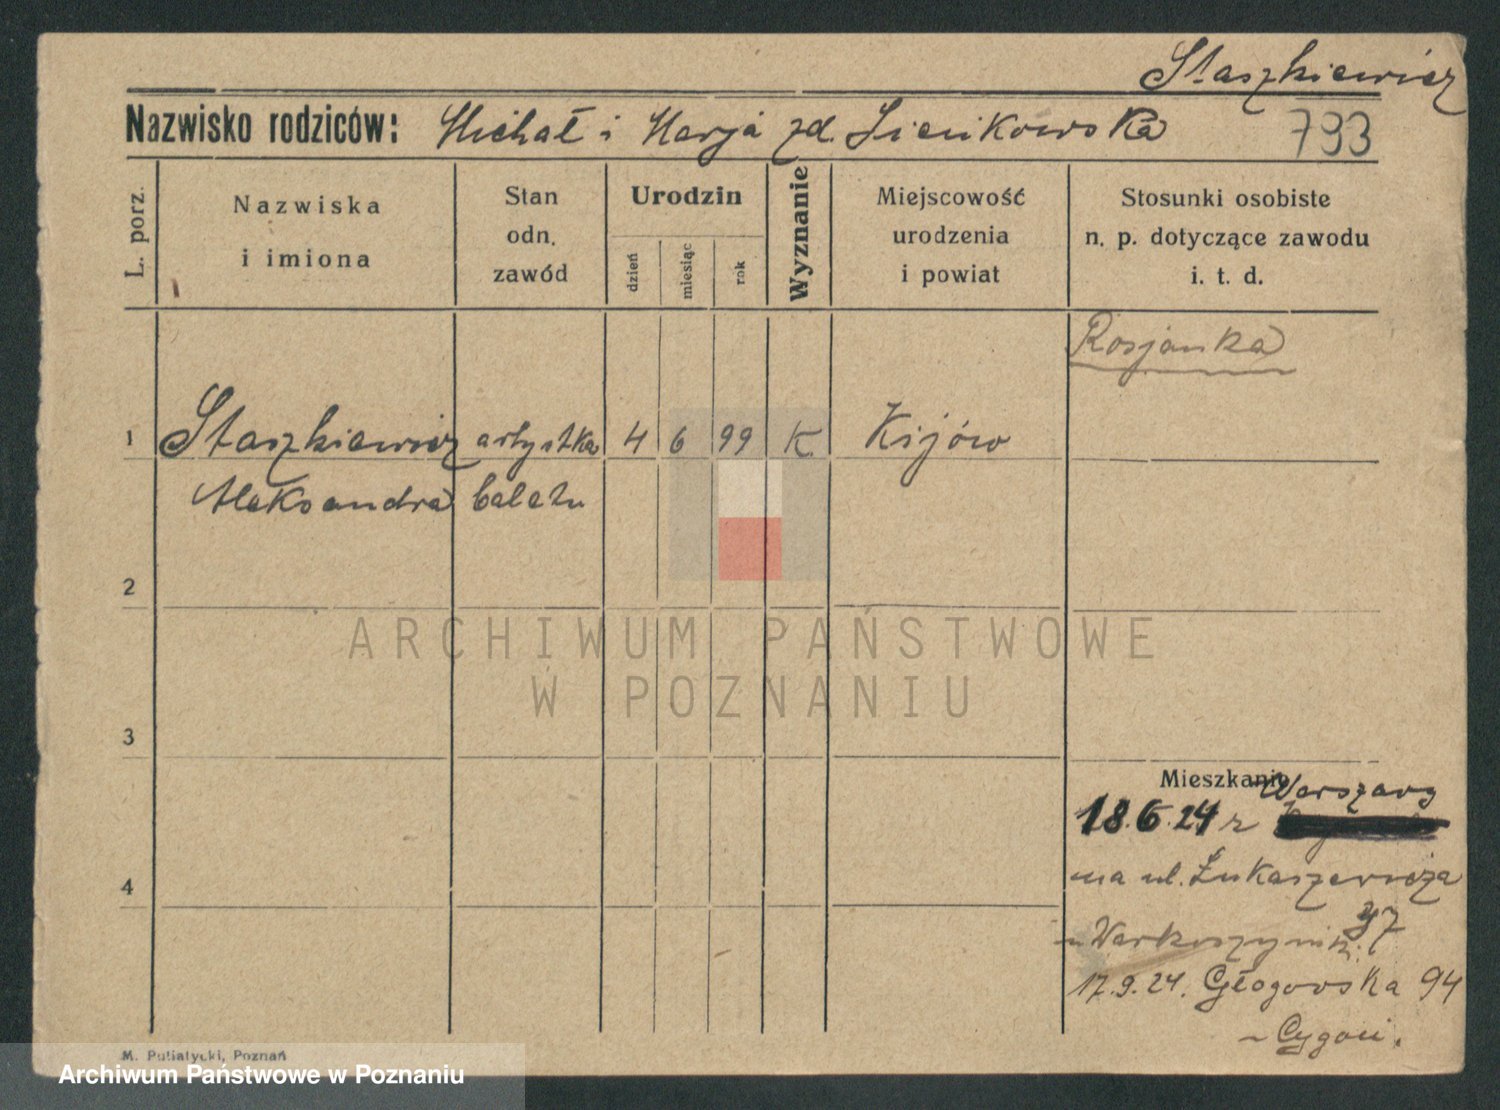 Staszkiewicz
Nazwisko rodziców: Michał i Marja zd. Zienkowska 793
L. porz.
Nazwiska
i imiona
Stan
odn.
zawód
Urodzin
dzień
miesiąc
rok
Wyznanie
Miejscowość
urodzenia
i powiat
Stosunki osobiste
n. p. dotyczące zawodu
i. t. d.
Rosjanka
1 Staszkiewicz artystka 4 6 99 K. Kijów
Aleksandra baletu
2
3
4
Mieszkanie
Warszawy
18.6.24 r
na ul. Łukaszewicza
37
17.9.24. Głogowska 94
ARCHIWUM PAŃSTWOWE
W POZNANIU
M. Putiatycki, Poznań
Archiwum Państwowe w Poznaniu